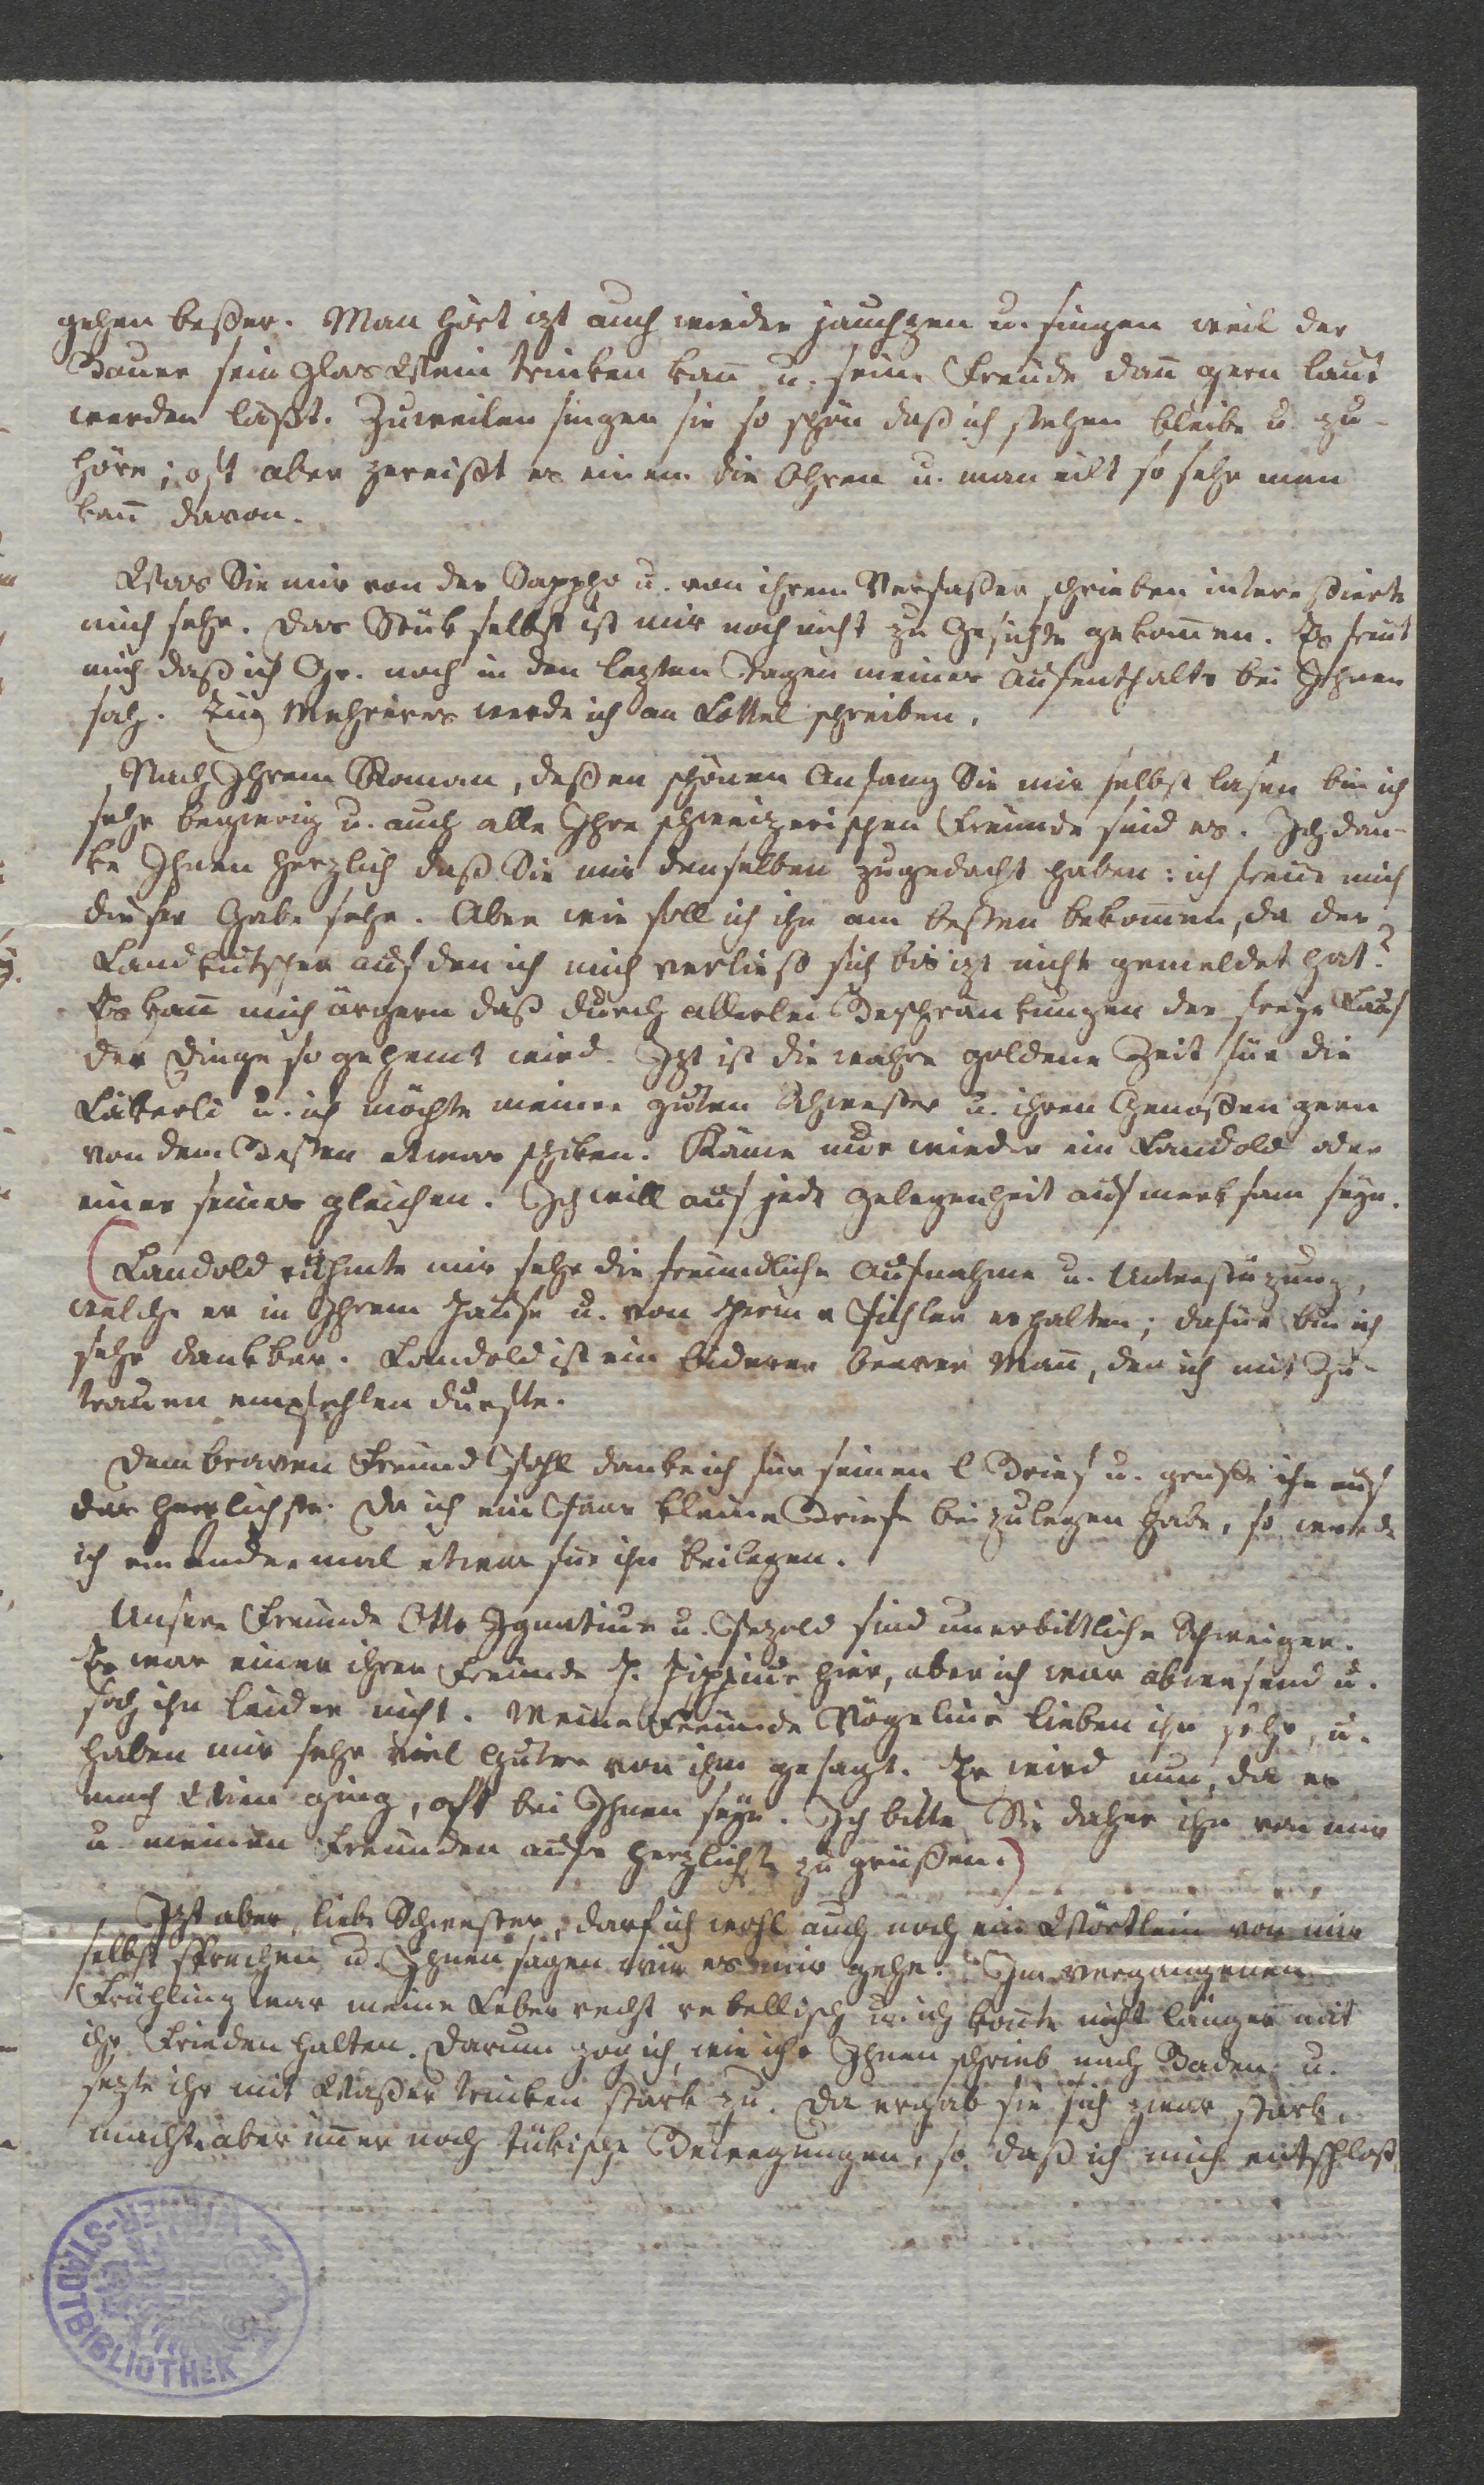 gehen beßer. Man hört izt auch wieder jauchzen u. singen weil der
Bauer sein Glas Wein trinken kan̄ u. seine Freude dan̄ gern laut
werden läßt. Zuweilen singen sie so schön daß ich stehen bleibe u. zu-
höre; oft aber zereißt es einem die Ohren u. man eilt so sehr man
kan̄ davon.
Was Sie mir von der Sappho u. von ihrem Verfaßer schrieben intereßierte
mich sehr. Das Stük selbst ist mir noch nicht zu Gesichte gekom̄en. Es freut
mich daß ich Gr. noch in den lezten Tagen meines Aufenthalts bei Ihnen
sah. Ein Mehreres werde ich an Lottel schreiben.
Nach Ihrem Roman, deßen schönen Anfang Sie mir selbst lasen bin ich
sehr begierig u. auch alle Ihre schweizerischen Freunde sind es. Ich dan-
ke Ihnen herzlich daß Sie mir denselben zugedacht haben: ich freue mich
dieser Gabe sehr. Aber wie soll ich ihn am besten bekom̄en, da der
Landkutscher auf den ich mich verließ sich bis izt nicht gemeldet hat?
Es kan̄ mich ärgern daß durch allerlei Beschränkungen der freye Lauf
der Dinge so gehem̄t wird. Izt ist die wahre goldene Zeit für die
Läkerli u. ich möchte meiner guten Schwester u. ihren Genoßen gern
von dem Besten etwas schiken. Käme nur wieder ein Landold oder
einer seines gleichen. Ich will auf jede Gelegenheit aufmerksam seyn.
(Landold rühmte mir sehr die freundliche Aufnahme u. Unterstüzung,
welche er in Ihrem Hause u. von Herrn v Pichler erhalten; dafür bin ich
sehr dankbar. Landold ist ein biederer braver Man̄, den ich mit Zu-
trauen empfehlen durfte.
Dem braven Freund Pohl danke ich für seinen l Brief u. grüße ihn auf
das herzlichste. Da ich ein Paar kleine Briefe beizulegen habe, so werde
ich ein andermal etwas für ihn beilegen.
Unsere Freunde Otto Ignatius u. Pezold sind unerbittliche Schweiger.
Es war einer ihrer Freunde H. Hippius hier, aber ich war abwesend u.
sah ihn leider nicht. Meine Freunde Vögelins lieben ihn sehr, u.
haben mir sehr viel Gutes von ihm gesagt. Er wird nun, da er
nach Wien ging, oft bei Ihnen seyn. Ich bitte Sie daher ihn von mir
u. meinen Freunden aufs herzlichste zu grüßen.)
Izt aber, liebe Schwester, darf ich wohl auch noch ein Wörtlein von mir
selbst sprechen u. Ihnen sagen wie es mir gehe. Im vergangenen
Frühling war meine Leber recht rebellisch u. ich kon̄te nicht länger mit
ihr Frieden halten. Darum zog ich, wie ichs Ihnen schrieb nach Baden u.
sezte ihr mit Waßer trinken stark zu. Da ergab sie sich zwar stark,
machte aber im̄er noch tükische Bewegungen, so daß ich mich entschloß,
WIENER-STADTBIBLIOTHEK